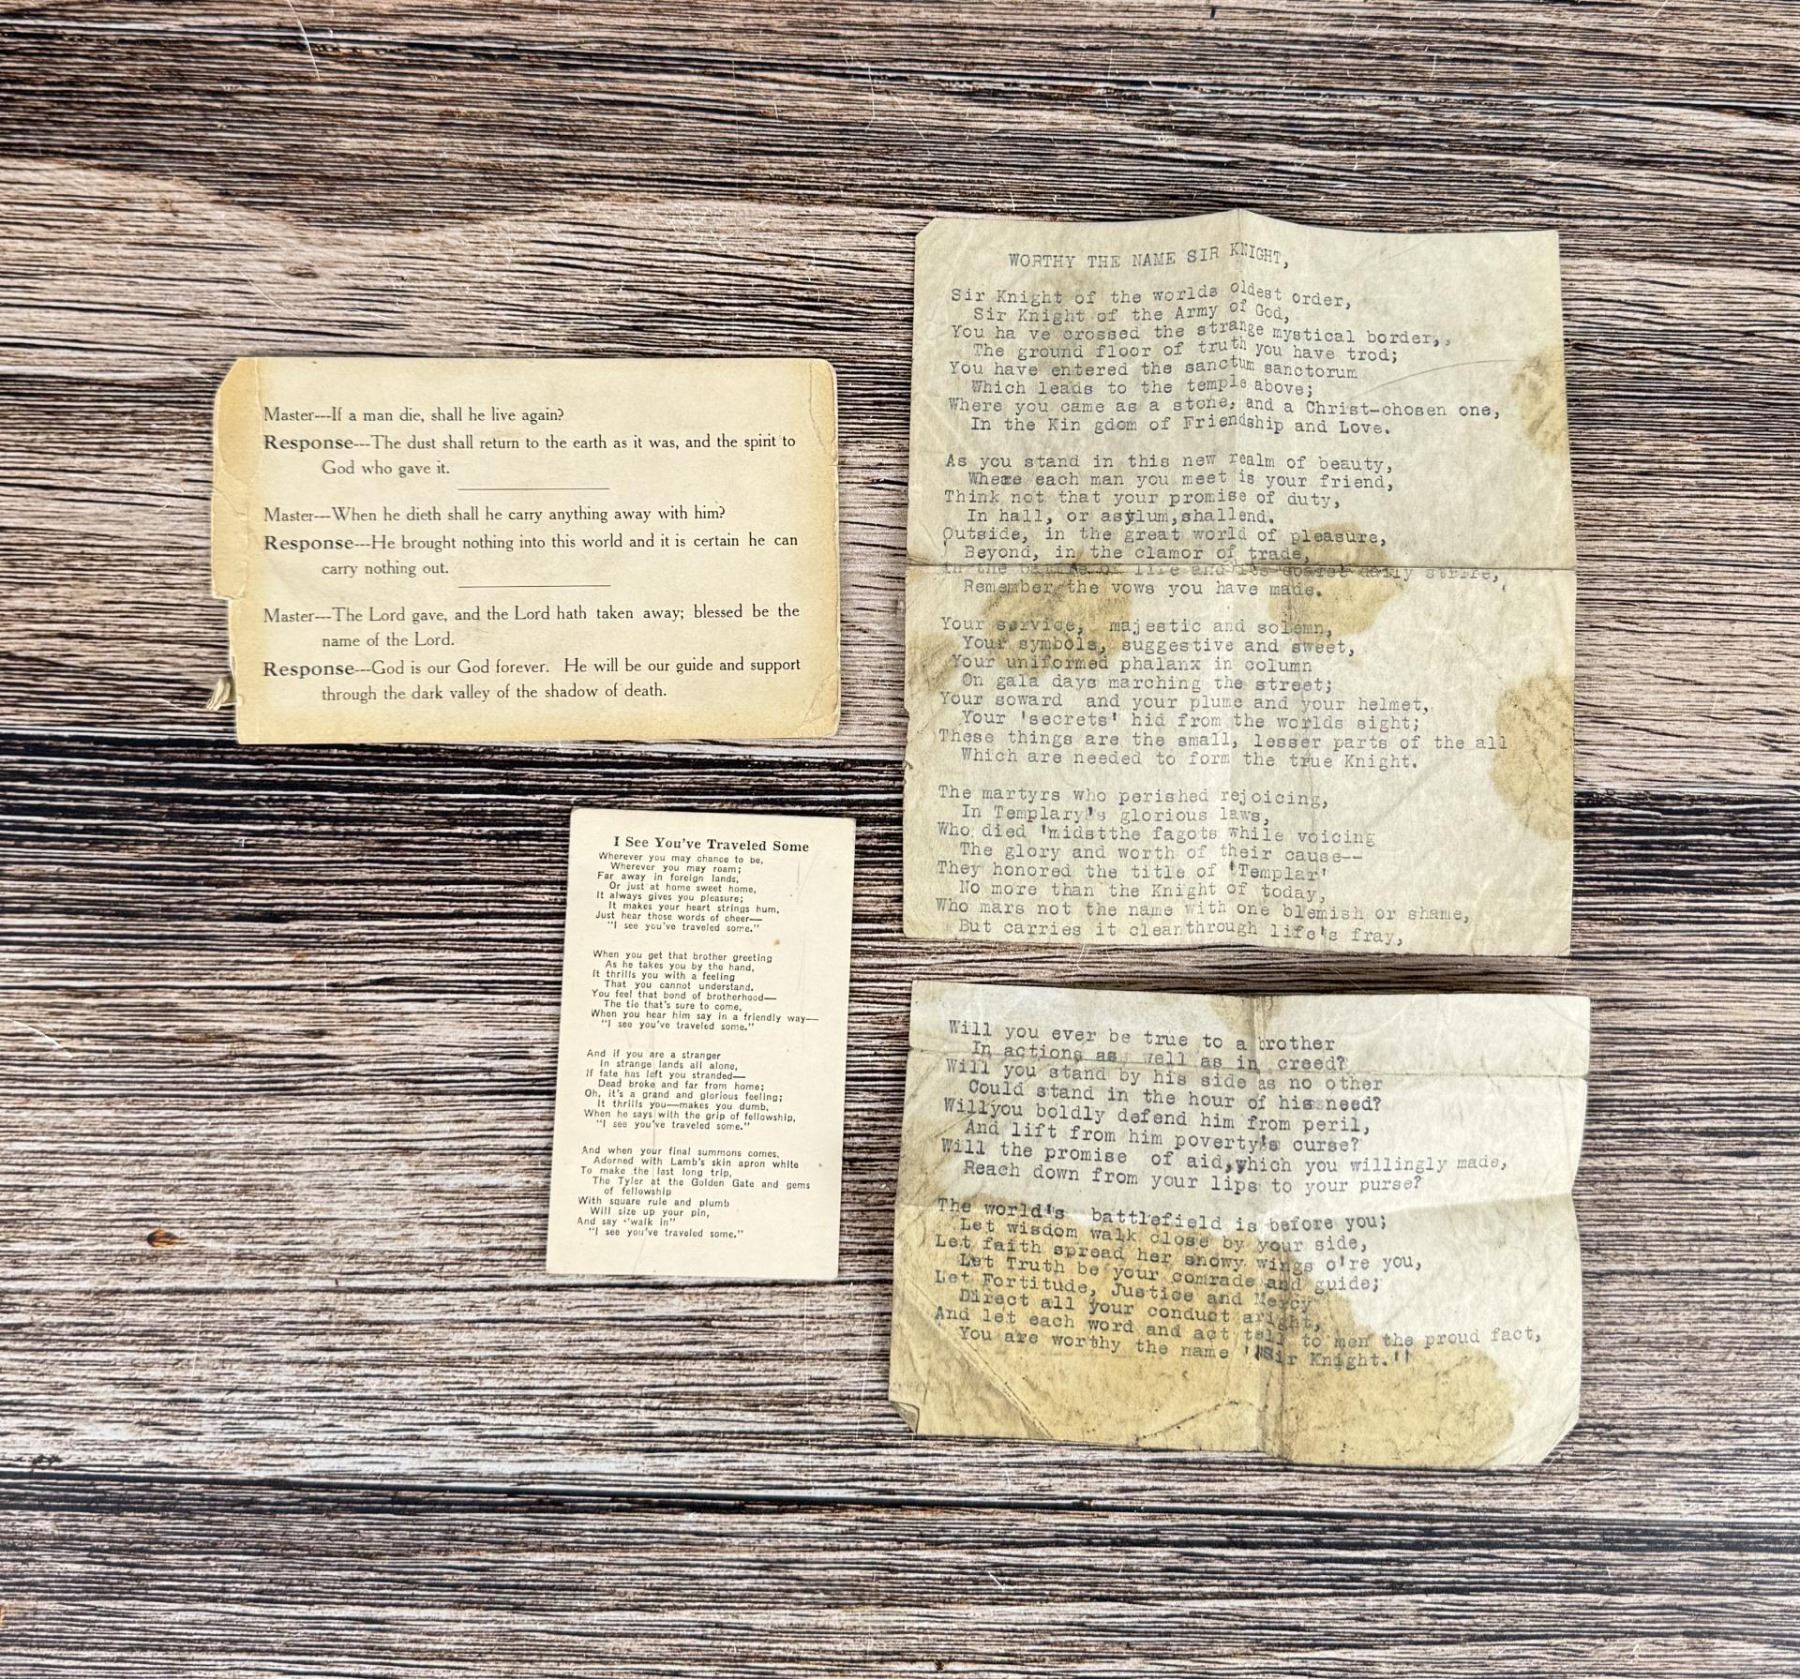 Master---If a man die, shall he live again?
Response---The dust shall return to the earth as it was, and the spirit to
God who gave it.
Master---When he dieth shall he carry anything away with him?
Response---He brought nothing into this world and it is certain he can
carry nothing out.
Master---The Lord gave, and the Lord hath taken away; blessed be the
name of the Lord.
Response---God is our God forever. He will be our guide and support
through the dark valley of the shadow of death.
I See You've Traveled Some
Wherever you may chance to be,
Wherever you may roam;
Far away in foreign lands,
Or just at home sweet home,
It always gives you pleasure;
It makes your heart strings hum,
Just hear those words of cheer—
"I see you've traveled some."
When you get that brother greeting
As he takes you by the hand,
It thrills you with a feeling
That you cannot understand.
You feel that bond of brotherhood—
The tie that's sure to come,
When you hear him say in a friendly way—
"I see you've traveled some."
And if you are a stranger
In strange lands all alone,
If fate has left you stranded—
Dead broke and far from home;
Oh, it's a grand and glorious feeling;
It thrills you—makes you dumb,
When he says with the grip of fellowship,
"I see you've traveled some."
And when your final summons comes,
Adorned with Lamb's skin apron white
To make the last long trip,
The Tyler at the Golden Gate and gems
of fellowship
With square rule and plumb
Will size up your pin,
And say "walk in"
"I see you've traveled some."
WORTHY THE NAME SIR KNIGHT,
Sir Knight of the worlds oldest order,
Sir Knight of the Army of God,
You ha ve crossed the strange mystical border,,
The ground floor of truth you have trod;
You have entered the sanctum sanctorum
Which leads to the temple above;
Where you came as a stone, and a Christ-chosen one,
In the Kin gdom of Friendship and Love.
As you stand in this new realm of beauty,
Where each man you meet is your friend,
Think not that your promise of duty,
In hall, or asylum,shallend.
Outside, in the great world of pleasure,
Beyond, in the clamor of trade,
in the battle of life and its daily strife,
Remember the vows you have made.
Your service, majestic and solemn,
Your symbols, suggestive and sweet,
Your uniformed phalanx in column
On gala days marching the street;
Your soward and your plume and your helmet,
Your 'secrets' hid from the worlds sight;
These things are the small, lesser parts of the all
Which are needed to form the true Knight.
The martyrs who perished rejoicing,
In Templary's glorious laws,
Who died 'midstthe fagots while voicing
The glory and worth of their cause--
They honored the title of 'Templar'
No more than the Knight of today,
Who mars not the name with one blemish or shame,
But carries it cleanthrough life's fray,
Will you ever be true to a brother
In actions as well as in creed?
Will you stand by his side as no other
Could stand in the hour of his need?
Willyou boldly defend him from peril,
And lift from him poverty's curse?
Will the promise of aid,which you willingly made,
Reach down from your lips to your purse?
The world's battlefield is before you;
Let wisdom walk close by your side,
Let faith spread her snowy wings o're you,
Let Truth be your comrade and guide;
Let Fortitude, Justice and Mercy
Direct all your conduct aright,
And let each word and act tell to men the proud fact,
You are worthy the name "Sir Knight."